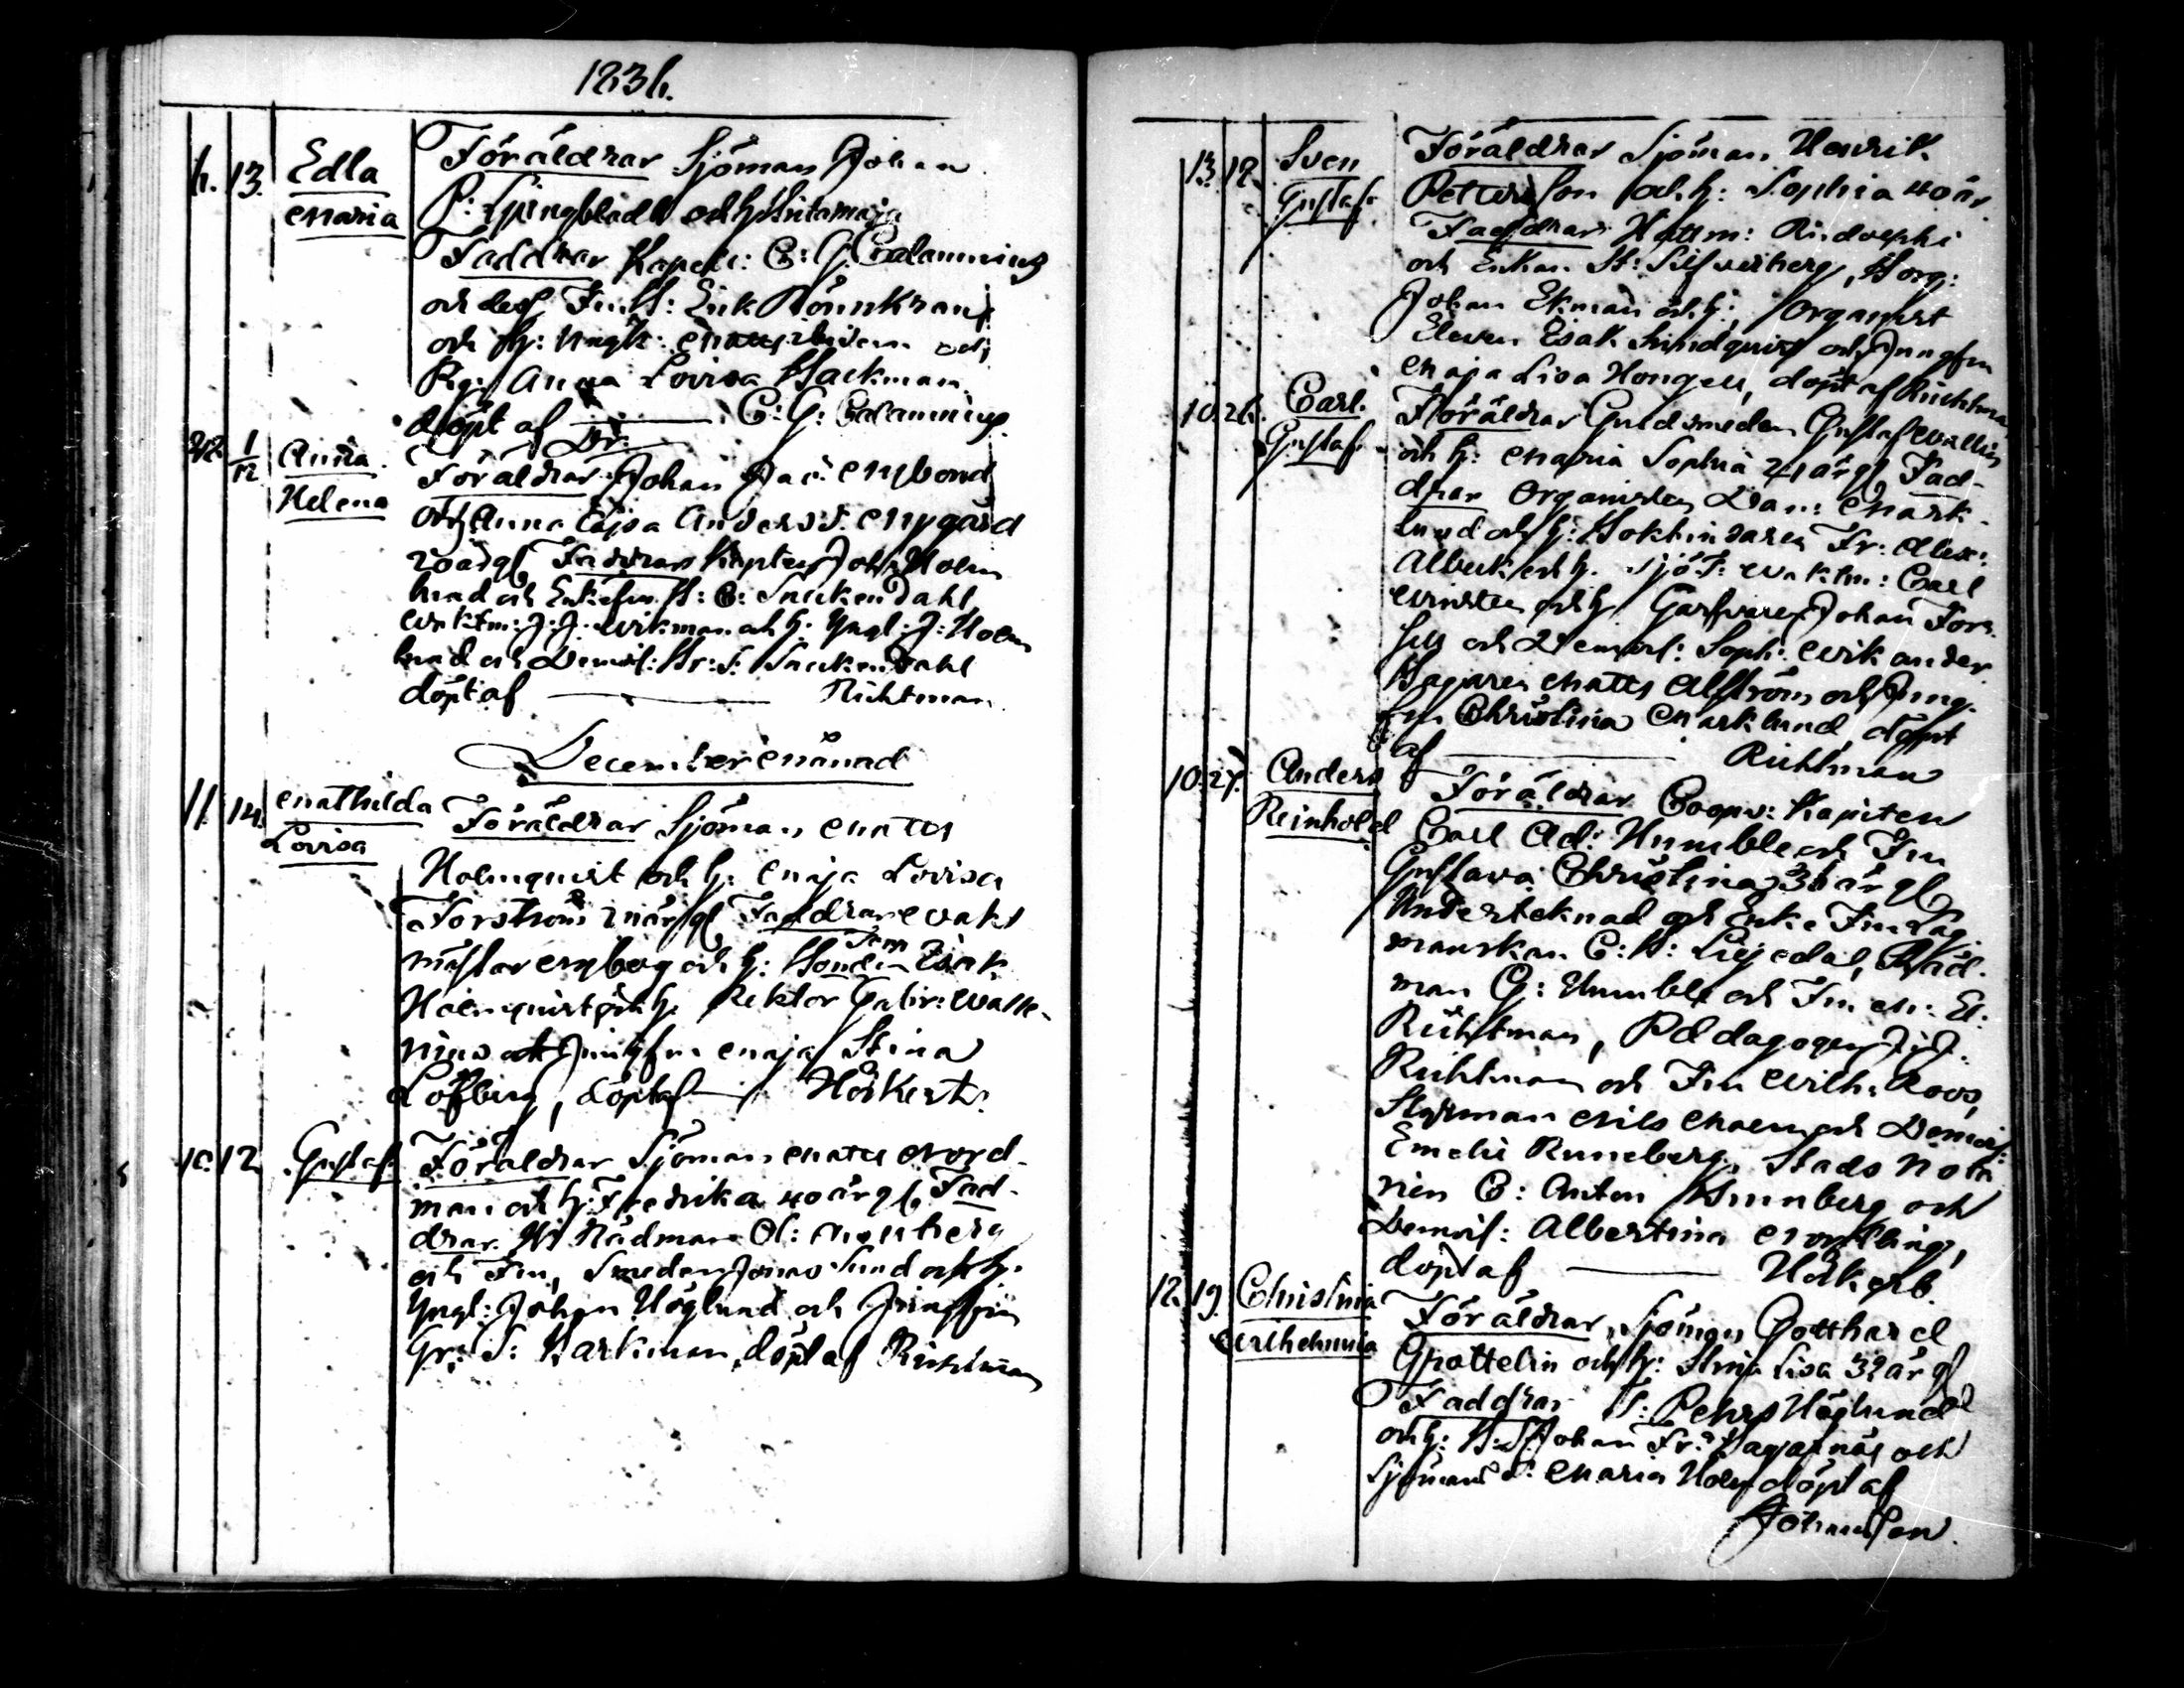 1836.
4. 13. Edla Maria
Föräldrar Sjöman Johan
P: Ljungbladh och h: Lisa Maja
Faddrar Kapel: C: G. Calamnius
och dess Fru H: Erik Rönnkranz
och h: Yngl: Matts och
Pig: Anna Lovisa Backman
döpt af — C: G: Calamnius
22. 1/12 Anna Helena
Föräldrar Johan Jac: Nybond
och Anna Cajsa Andersd. Nygård
20 årgl, Faddrar Kapten Joh: Holm
lund och Enkefru H: C: Snickendahl
Waktm: J. J. Wikman och h: Yngl: J: Holm
lund och Demois: Br: S: Snickendahl
döpt af — Richtman
December Månad
11. 14. Mathilda Lovisa
Föräldrar Sjöman Matts
Holmquist och h: Maja Lovisa
Forström årgl, Faddrar Wakt
mästar Nyberg och h: Isak
Holmquist och h: Rektor Gabr: Walle-
nius och Jungfru Maja Stina
Löfberg, döpt af — Höckert.
10. 12. Gustaf.
Föräldrar Sjöman Matts Nord-
man och h: Fredrika 40 årgl, Fad-
drar Hr Rådman Ol: Mosberg
och Fru, Smeden Jonas Sund och h:
Yngl: Johan Höglund och Jungfru
Gr: S: Barkman, döpt af Richtman
13. 18. Sven Gustaf.
Föräldrar Sjöman Henrik
Pettersson och h: Sophia 40 år.
Faddrar Hattm: Rudolphi
och Enkan H: Silfverberg, Borg:
Johan Ekman och h:, Organist
Eleven Esak Lindquist och Jungfru
Maja Lisa Hongell, döpt af Richtman
10. 26. Carl. Gustaf.
Föräldrar Guldsmeden Gustaf Wallin
och h: Maria Sophia 24 årgl, Fad-
drar Organisten Dan: Mark-
lund och h: Bokbindaren Fr: Alex:
Albeck och h. Sjö T: Waktm: Carl
Winsten och h. Garfvaren Johan Fors
sell och Demois: Soph: Wikander.
Bagaren Matts Alström och Jung-
fru Christina Marklund, döpt
af — Richtman
10. 27. Anders Reinhold
Föräldrar Coopv: Kapiten
Carl Ad: Humble och Fru
Gustava Christina 36 årgl
Undertecknad och Enke Fru Lag-
manskan C: H: Lilljedal, Råd-
man G: Humble och Fru M: El:
Richtman, Pædagogen J: J.
Richtman och Fru Wilh: Roos,
Styrman Nils Malm och Demois:
Emelie Runeberg, Stads Nota
rien C: Anton Kunnberg och
Demois: Albertina Mollring,
döpt af — Höckert.
12. 19. Christina Wilhelmina
Föräldrar, Sjöman Gotthard
Spottelin och h: Stina Lisa 32 årgl
Faddrar T: Pehrs Höglund
och h: B:S: Johan Fr: Hagasnäs och
Sjömans d: Maria Holm döpt af
Johansson.